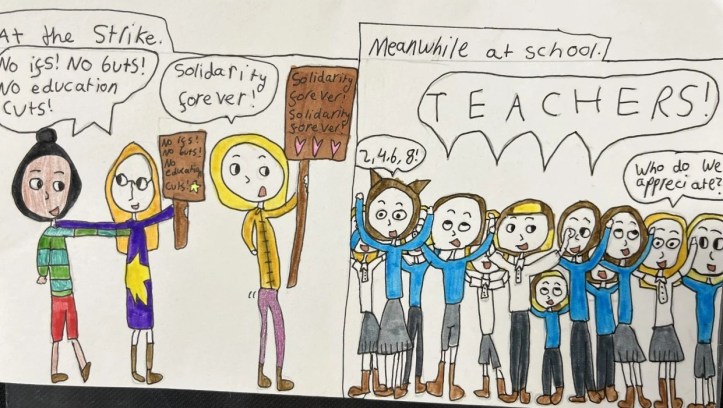 At the Strike.
No ifs! No buts!
No education
cuts!
Solidarity
forever!
No ifs!
No buts!
No
education
cuts!
Solidarity
forever!
Solidarity
forever!
Meanwhile at school.
TEACHERS!
2,4,6,8!
Who do we
appreciate?